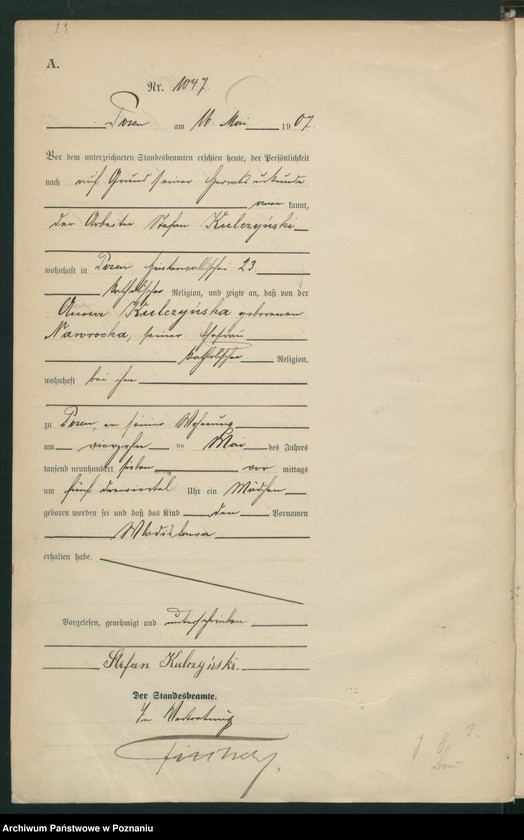 A.
Nr. 1047
Posen am 16. Mai 1907.
Vor dem unterzeichneten Standesbeamten erschien heute, der Persönlichkeit
nach auf Grund seiner Heiratsurkunde
kannt,
der Arbeiter Stefan Kulczyński
wohnhaft in Posen, Hinterwallischei 23
katholischer Religion, und zeigte an, daß von der
Anna Kulczyńska geborenen
Nawrocka, seiner Ehefrau
katholischer Religion,
wohnhaft bei ihm
zu Posen, in seiner Wohnung
am vierzehn ten Mai des Jahres
tausend neunhundert sieben vor mittags
um fünf dreiviertel Uhr ein Mädchen
geboren worden sei und daß das Kind den Vornamen
Wladislawa
erhalten habe.
Vorgelesen, genehmigt und unterschrieben
Stefan Kulczyński.
Der Standesbeamte.
In Vertretung
Archiwum Państwowe w Poznaniu